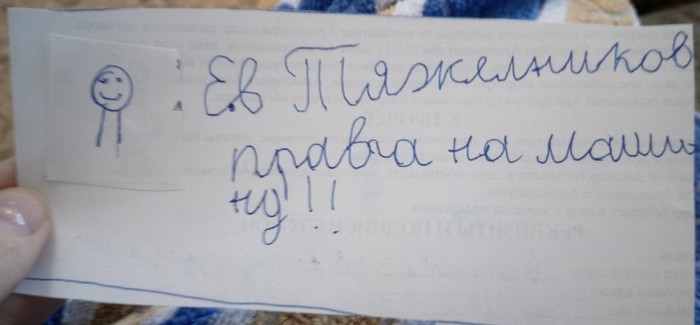 Ев Тяжелников
правча на маши
ну!!